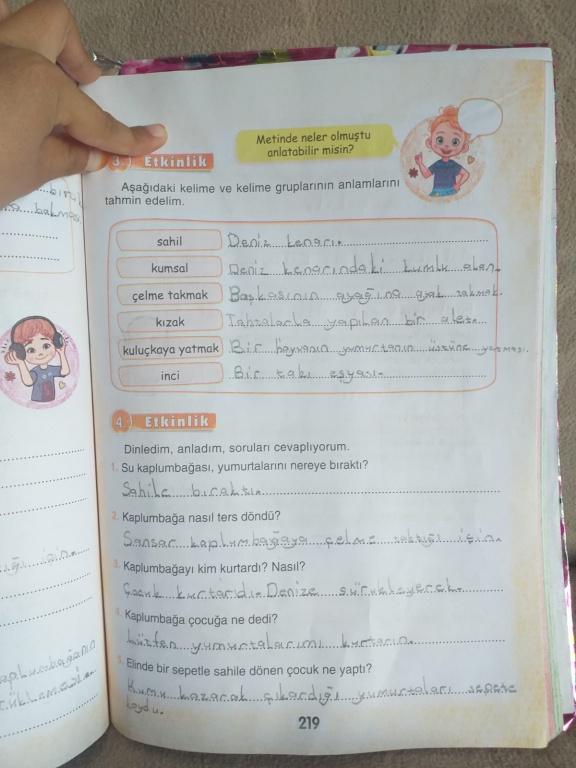 Metinde neler olmuştu
anlatabilir misin?
3. Etkinlik
Aşağıdaki kelime ve kelime gruplarının anlamlarını
tahmin edelim.
sahil Deniz kenarı.
kumsal Deniz kenarındaki kumluk alan.
çelme takmak Başkasının ayağına ayak takmak.
kızak Tahtalarla yapılan bir alet.
kuluçkaya yatmak Bir hayvanın yumurtanın üstüne yatması.
inci Bir takı eşyası.
4. Etkinlik
Dinledim, anladım, soruları cevaplıyorum.
1. Su kaplumbağası, yumurtalarını nereye bıraktı?
Sahile bıraktı.
2. Kaplumbağa nasıl ters döndü?
Sansar kaplumbağaya çelme taktığı için.
3. Kaplumbağayı kim kurtardı? Nasıl?
Çocuk kurtardı. Denize sürükleyerek.
4. Kaplumbağa çocuğa ne dedi?
Lütfen yumurtalarımı kurtarın.
5. Elinde bir sepetle sahile dönen çocuk ne yaptı?
Kumu kazarak çıkardığı yumurtaları sepete
koydu.
219